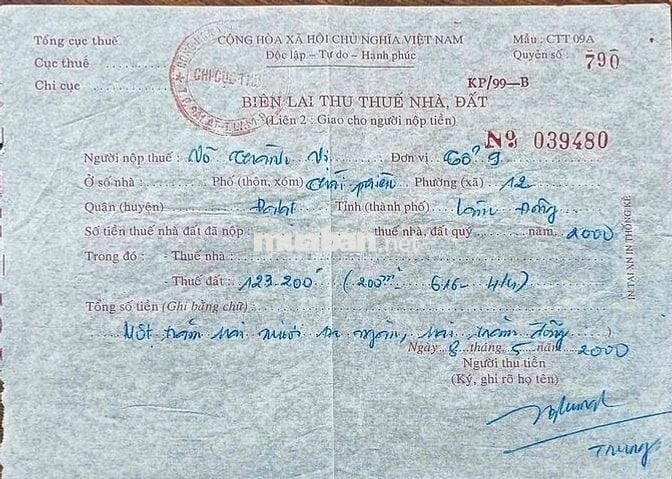 Tổng cục thuế CỘNG HÒA XÃ HỘI CHỦ NGHĨA VIỆT NAM Mẫu: CTT 09A
Cục thuế Độc lập - Tự do - Hạnh phúc Quyển số: 790
Chi cục CHI CỤC THUẾ KP/99-B
BIÊN LAI THU THUẾ NHÀ, ĐẤT
(Liên 2: Giao cho người nộp tiền)
Nº 039480
Người nộp thuế: Võ Thành Vi Đơn vị Tổ 9
Ở số nhà Phố (thôn, xóm) Thái Phiên Phường (xã) 12
Quận (huyện) Đalat Tỉnh (thành phố) Lâm Đồng
Số tiền thuế nhà đất đã nộp: thuế nhà, đất quý năm 2000
muaban.net
Trong đó: - Thuế nhà:
- Thuế đất: 123.200đ (200m² 616- 4/4)
Tổng số tiền (Ghi bằng chữ)
Một trăm hai mươi ba ngàn, hai trăm đồng )
Ngày 8 tháng 5 năm 2000
Người thu tiền
(Ký, ghi rõ họ tên)
Trung
IN TẠI XN IN THỐNG KÊ